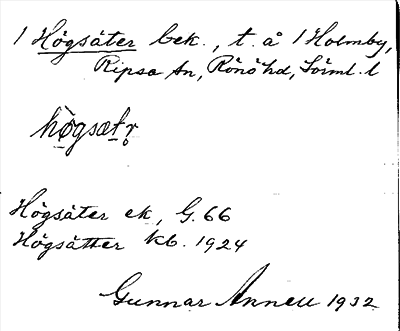 1 Högsäter bek., t. å 1 Holmby,
Ripsa sn, Rönö hd, Sörml. l
hògsætr̥
Högsäter ek, G. 66
Högsätter kb. 1924
Gunnar Annell 1932